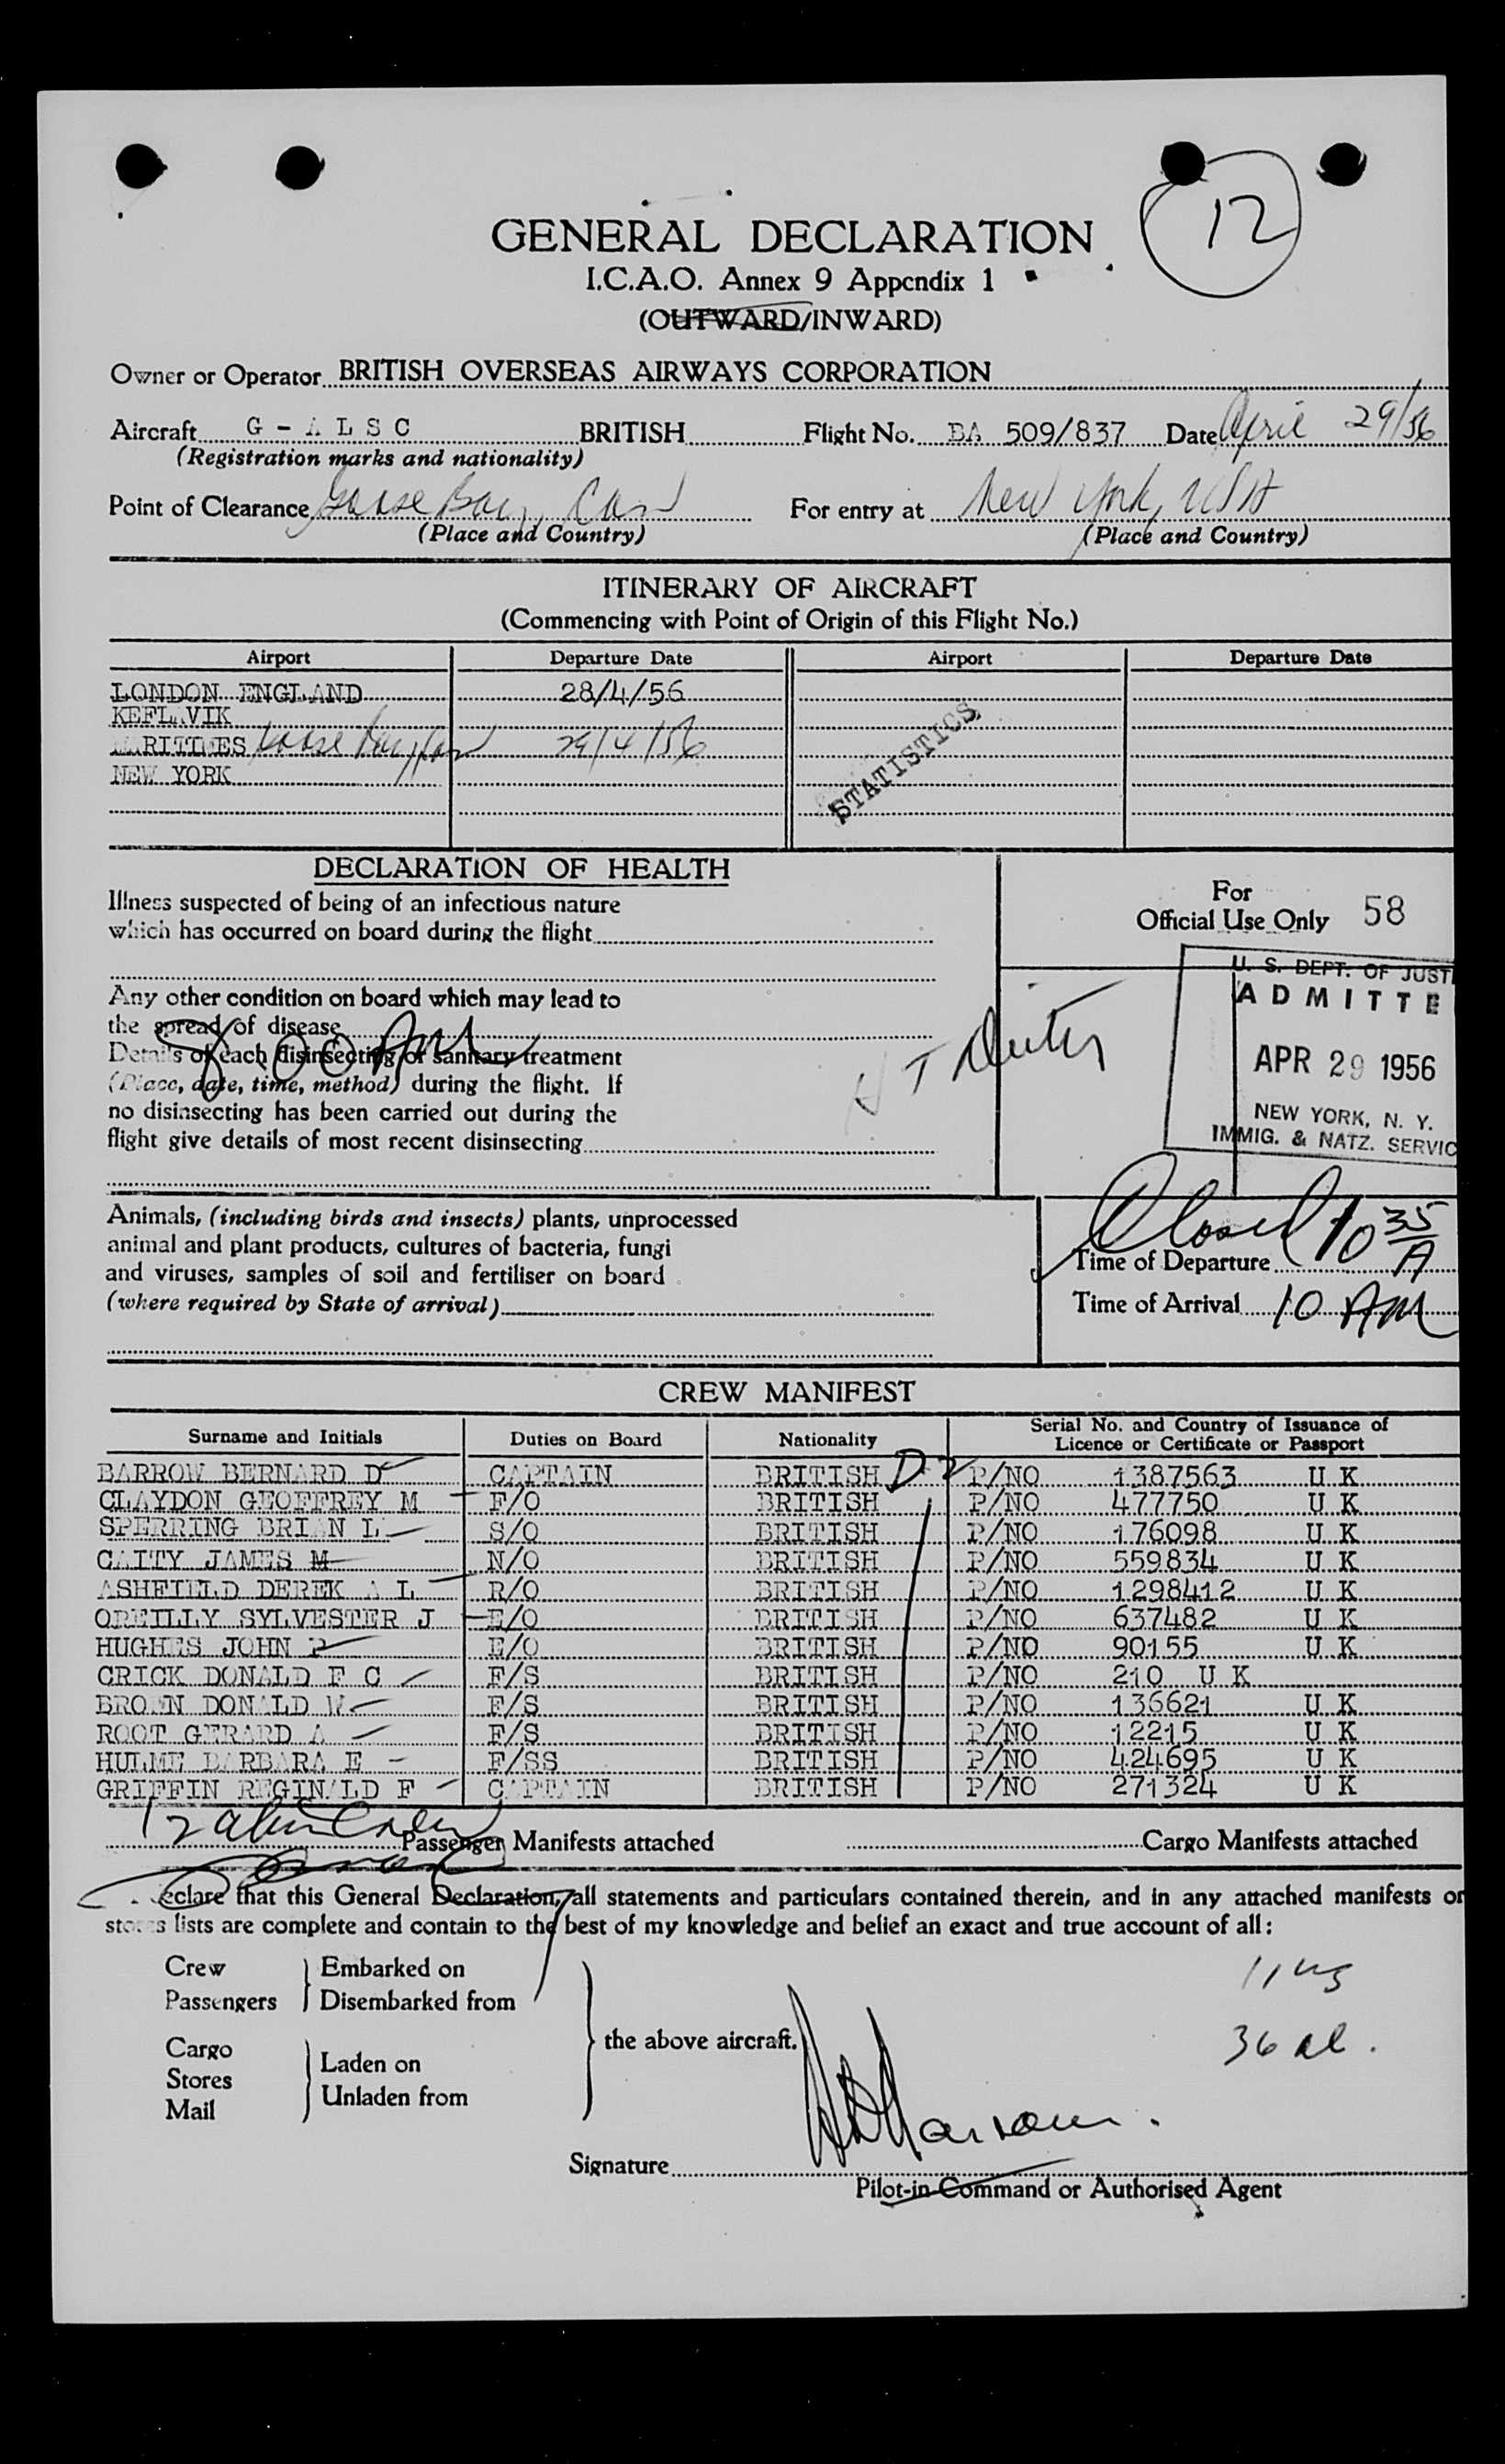 12
GENERAL DECLARATION
I.C.A.O. Annex 9 Appendix 1
(OUTWARD/INWARD)
Owner or Operator BRITISH OVERSEAS AIRWAYS CORPORATION
Aircraft G - A L S C BRITISH Flight No. BA 509/837 Date April 29/56
(Registration marks and nationality)
Point of Clearance Goose Bay, Can For entry at New York, USA
(Place and Country) (Place and Country)
ITINERARY OF AIRCRAFT
(Commencing with Point of Origin of this Flight No.)
Airport Departure Date Airport Departure Date
LONDON ENGLAND 28/4/56
KEFLAVIK
MARITIMES Goose Bay, Can 29/4/56
NEW YORK
STATISTICS
DECLARATION OF HEALTH
Illness suspected of being of an infectious nature
which has occurred on board during the flight
For
Official Use Only 58
Any other condition on board which may lead to
the spread of disease
8.00 AM
Details of each disinsecting or sanitary treatment
(Place, date, time, method) during the flight. If
no disinsecting has been carried out during the
flight give details of most recent disinsecting
U. S. DEPT. OF JUSTI
ADMITTE
APR 29 1956
NEW YORK, N. Y.
IMMIG. & NATZ. SERVIC
Animals, (including birds and insects) plants, unprocessed
animal and plant products, cultures of bacteria, fungi
and viruses, samples of soil and fertiliser on board
(where required by State of arrival)
Closed 10 35/A
Time of Departure
Time of Arrival 10 AM
CREW MANIFEST
Surname and Initials Duties on Board Nationality Serial No. and Country of Issuance of Licence or Certificate or Passport
BARROW BERNARD D CAPTAIN BRITISH D2 P/NO 1387563 U K
CLAYDON GEOFFREY M F/O BRITISH P/NO 477750 U K
SPERRING BRIAN L S/O BRITISH P/NO 176098 U K
CAITY JAMES M N/O BRITISH P/NO 559834 U K
ASHFIELD DEREK A L R/O BRITISH P/NO 1298412 U K
OREILLY SYLVESTER J E/O BRITISH P/NO 637482 U K
HUGHES JOHN P E/O BRITISH P/NO 90155 U K
CRICK DONALD F C F/S BRITISH P/NO 210 U K
BROWN DONALD W F/S BRITISH P/NO 136621 U K
ROOT GERARD A F/S BRITISH P/NO 12215 U K
HULME BARBARA E F/SS BRITISH P/NO 424695 U K
GRIFFIN REGINALD F CAPTAIN BRITISH P/NO 271324 U K
12 alien crew
Passenger Manifests attached Cargo Manifests attached
I declare that this General Declaration, all statements and particulars contained therein, and in any attached manifests or
stores lists are complete and contain to the best of my knowledge and belief an exact and true account of all:
Crew Embarked on
Passengers Disembarked from
the above aircraft.
Cargo Laden on
Stores
Mail Unladen from
11 us
36 al.
Signature
Pilot-in-Command or Authorised Agent